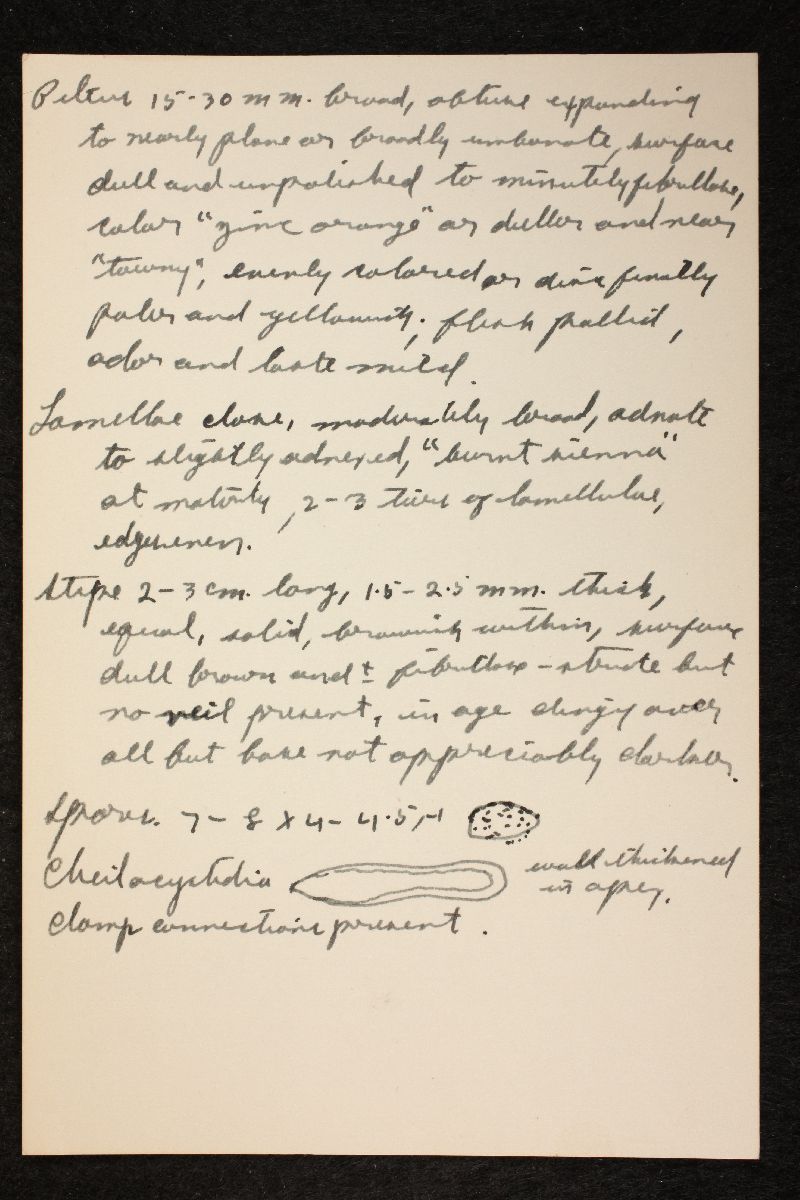 Pileus 15-30 mm. broad, obtuse expanding
to nearly plane or broadly umbonate, surface
dull and unpolished to minutely fibrillose,
color "zinc orange" or duller and near
"tawny", evenly colored or disc finally
paler and yellowish; flesh pallid,
odor and taste mild.
Lamellae close, moderately broad, adnate
to slightly adnexed, "burnt sienna"
at maturity, 2-3 tiers of lamellulae,
edges even.
Stipe 2-3 cm. long, 1.5-2.5 mm. thick,
equal, solid, brownish within, surface
dull brown and ± fibrillose-striate but
no veil present, in age dingy over
all but base not appreciably darker.
Spores. 7-8 X 4-4.5 µ
Cheilocystidia wall thickened
in apex.
Clamp connections present.